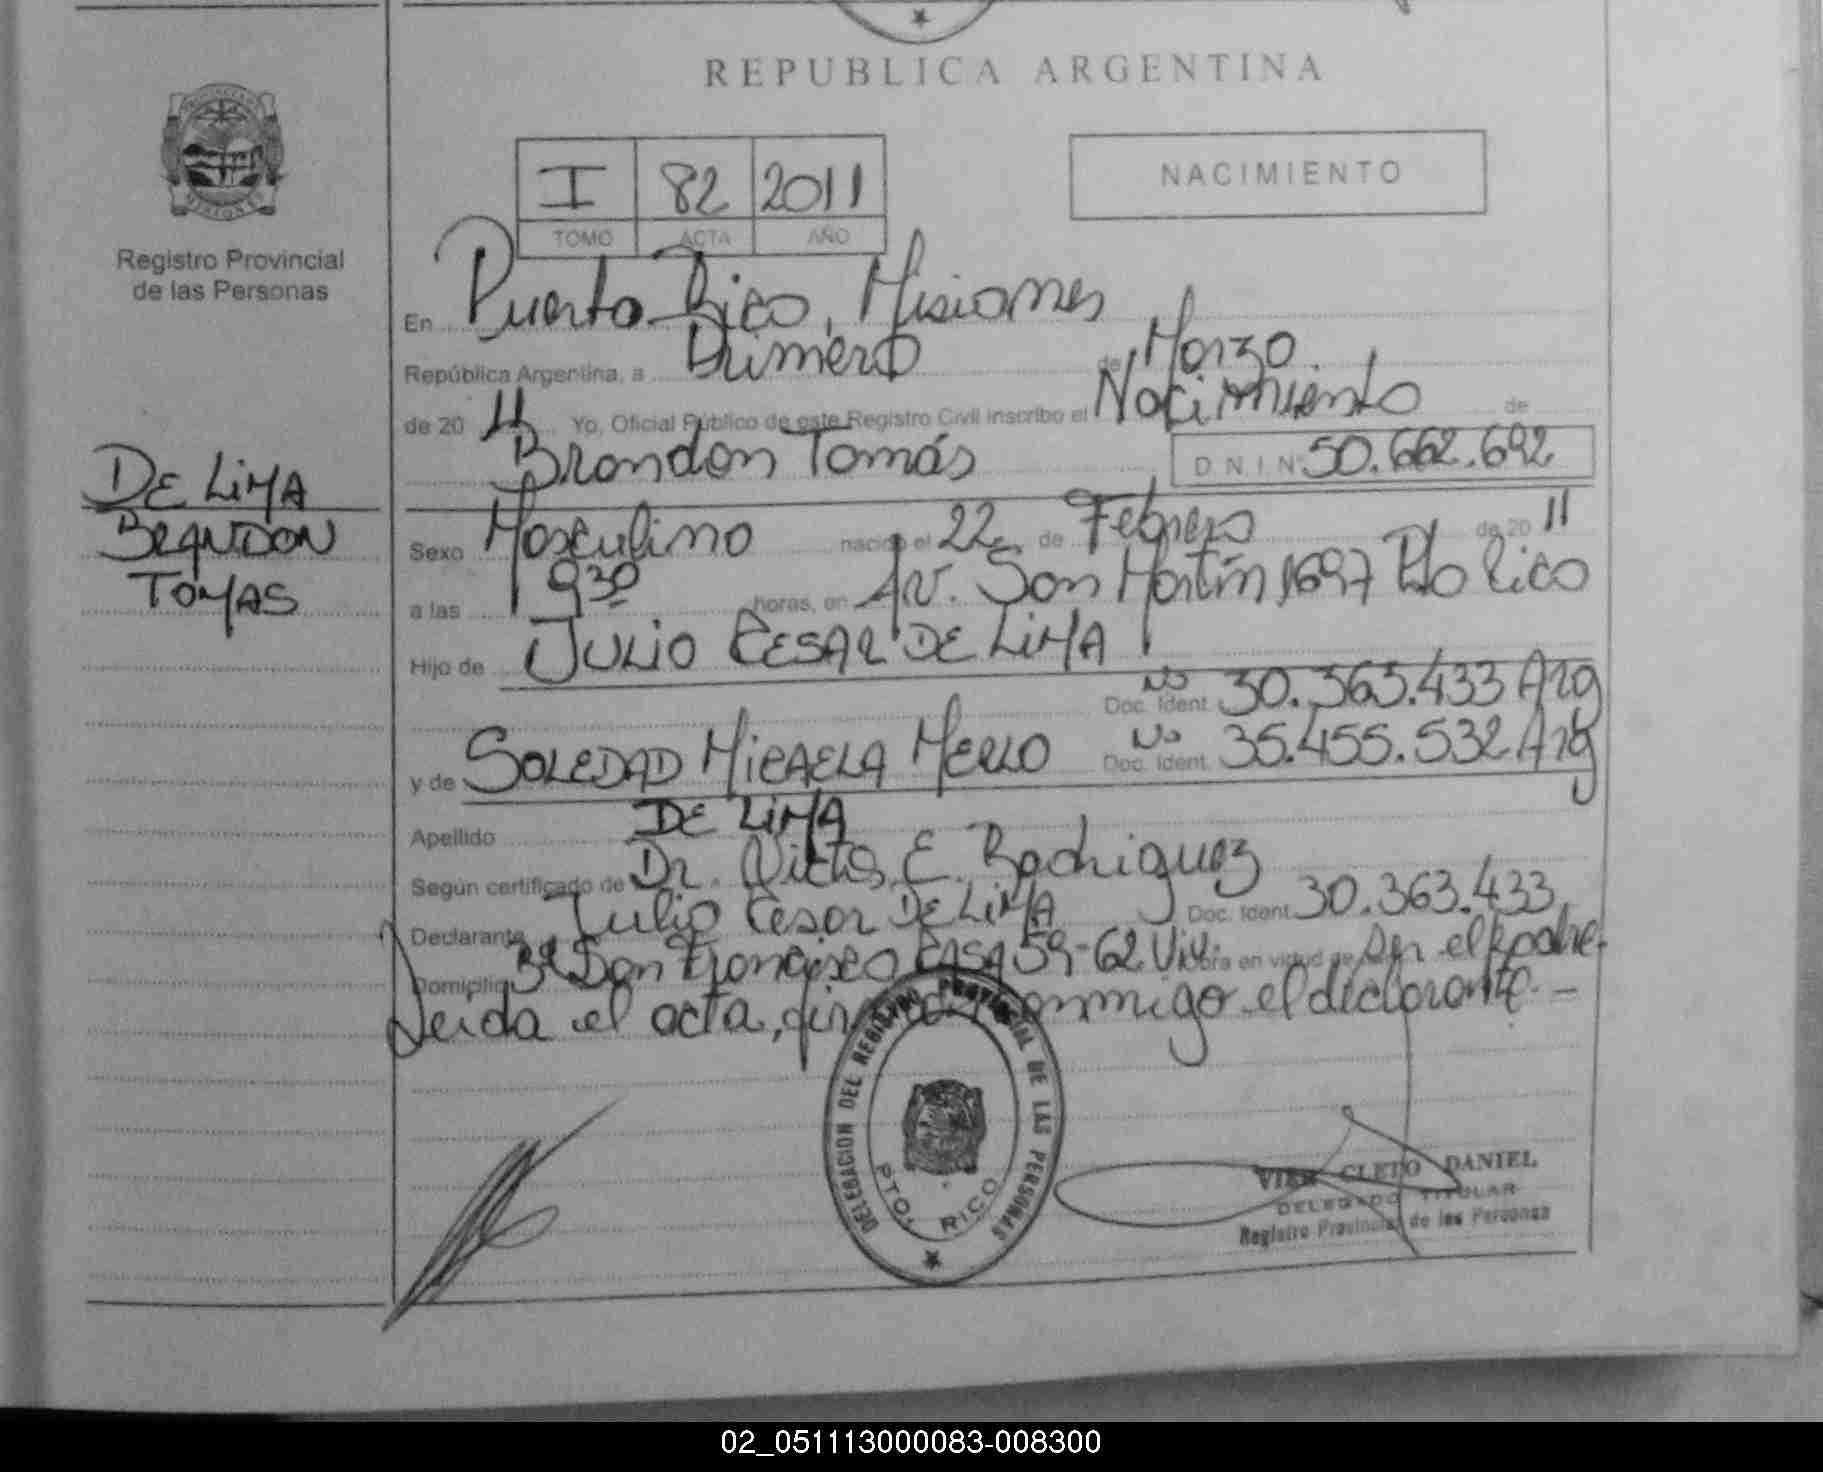 REPUBLICA ARGENTINA
Registro Provincial
de las Personas
I 82 2011
TOMO ACTA AÑO
NACIMIENTO
En Puerto Rico, Misiones
República Argentina, a Primero de Marzo
de 20 11 Yo, Oficial Público de este Registro Civil inscribo el Nacimiento de
Brandon Tomás D.N.I. Nº 50.662.692
DE LIMA
BRANDON
TOMAS
Sexo Masculino nacido el 22 de Febrero de 20 11
a las 9 30 horas, en Av. San Martín 1697 Pto Rico
Hijo de JULIO CESAR DE LIMA
Doc. Ident. No 30.363.433 Arg
y de SOLEDAD MICAELA MERLO Doc. Ident. No 35.455.532 Arg
Apellido DE LIMA
Según certificado de Dr. Victor E. Rodriguez
Declarante Julio Cesar DE LIMA Doc. Ident. 30.363.433
Domicilio Bº San Francisco CASA 59-62 Viv. obra en virtud de Ser el padre.
Leida el acta, firma conmigo el declarante. -
DELEGACION DEL REGISTRO PROVINCIAL DE LAS PERSONAS
PTO. RICO
CLETO DANIEL
DELEGADO TITULAR
Registro Provincial de las Personas
02_051113000083-008300